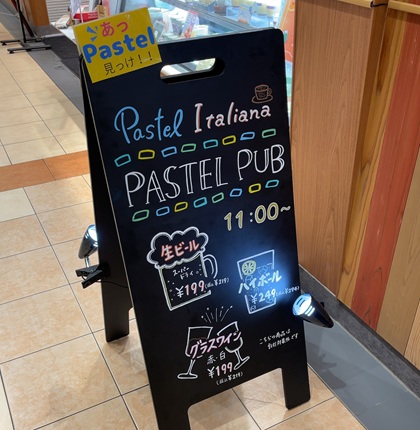 あっ
Pastel
見っけ!!
Pastel Italiana
PASTEL PUB
11:00~
生ビール
スーパー
ドライ
¥199(税込¥219)
ハイボール
¥249
グラスワイン
赤・白
¥199
(税込¥219)
こちらの商品は